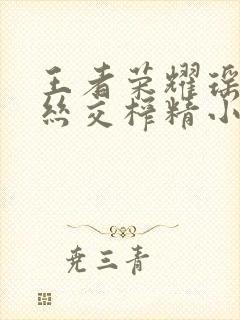 王者荣耀瑶
丝交榨精小
尭三青